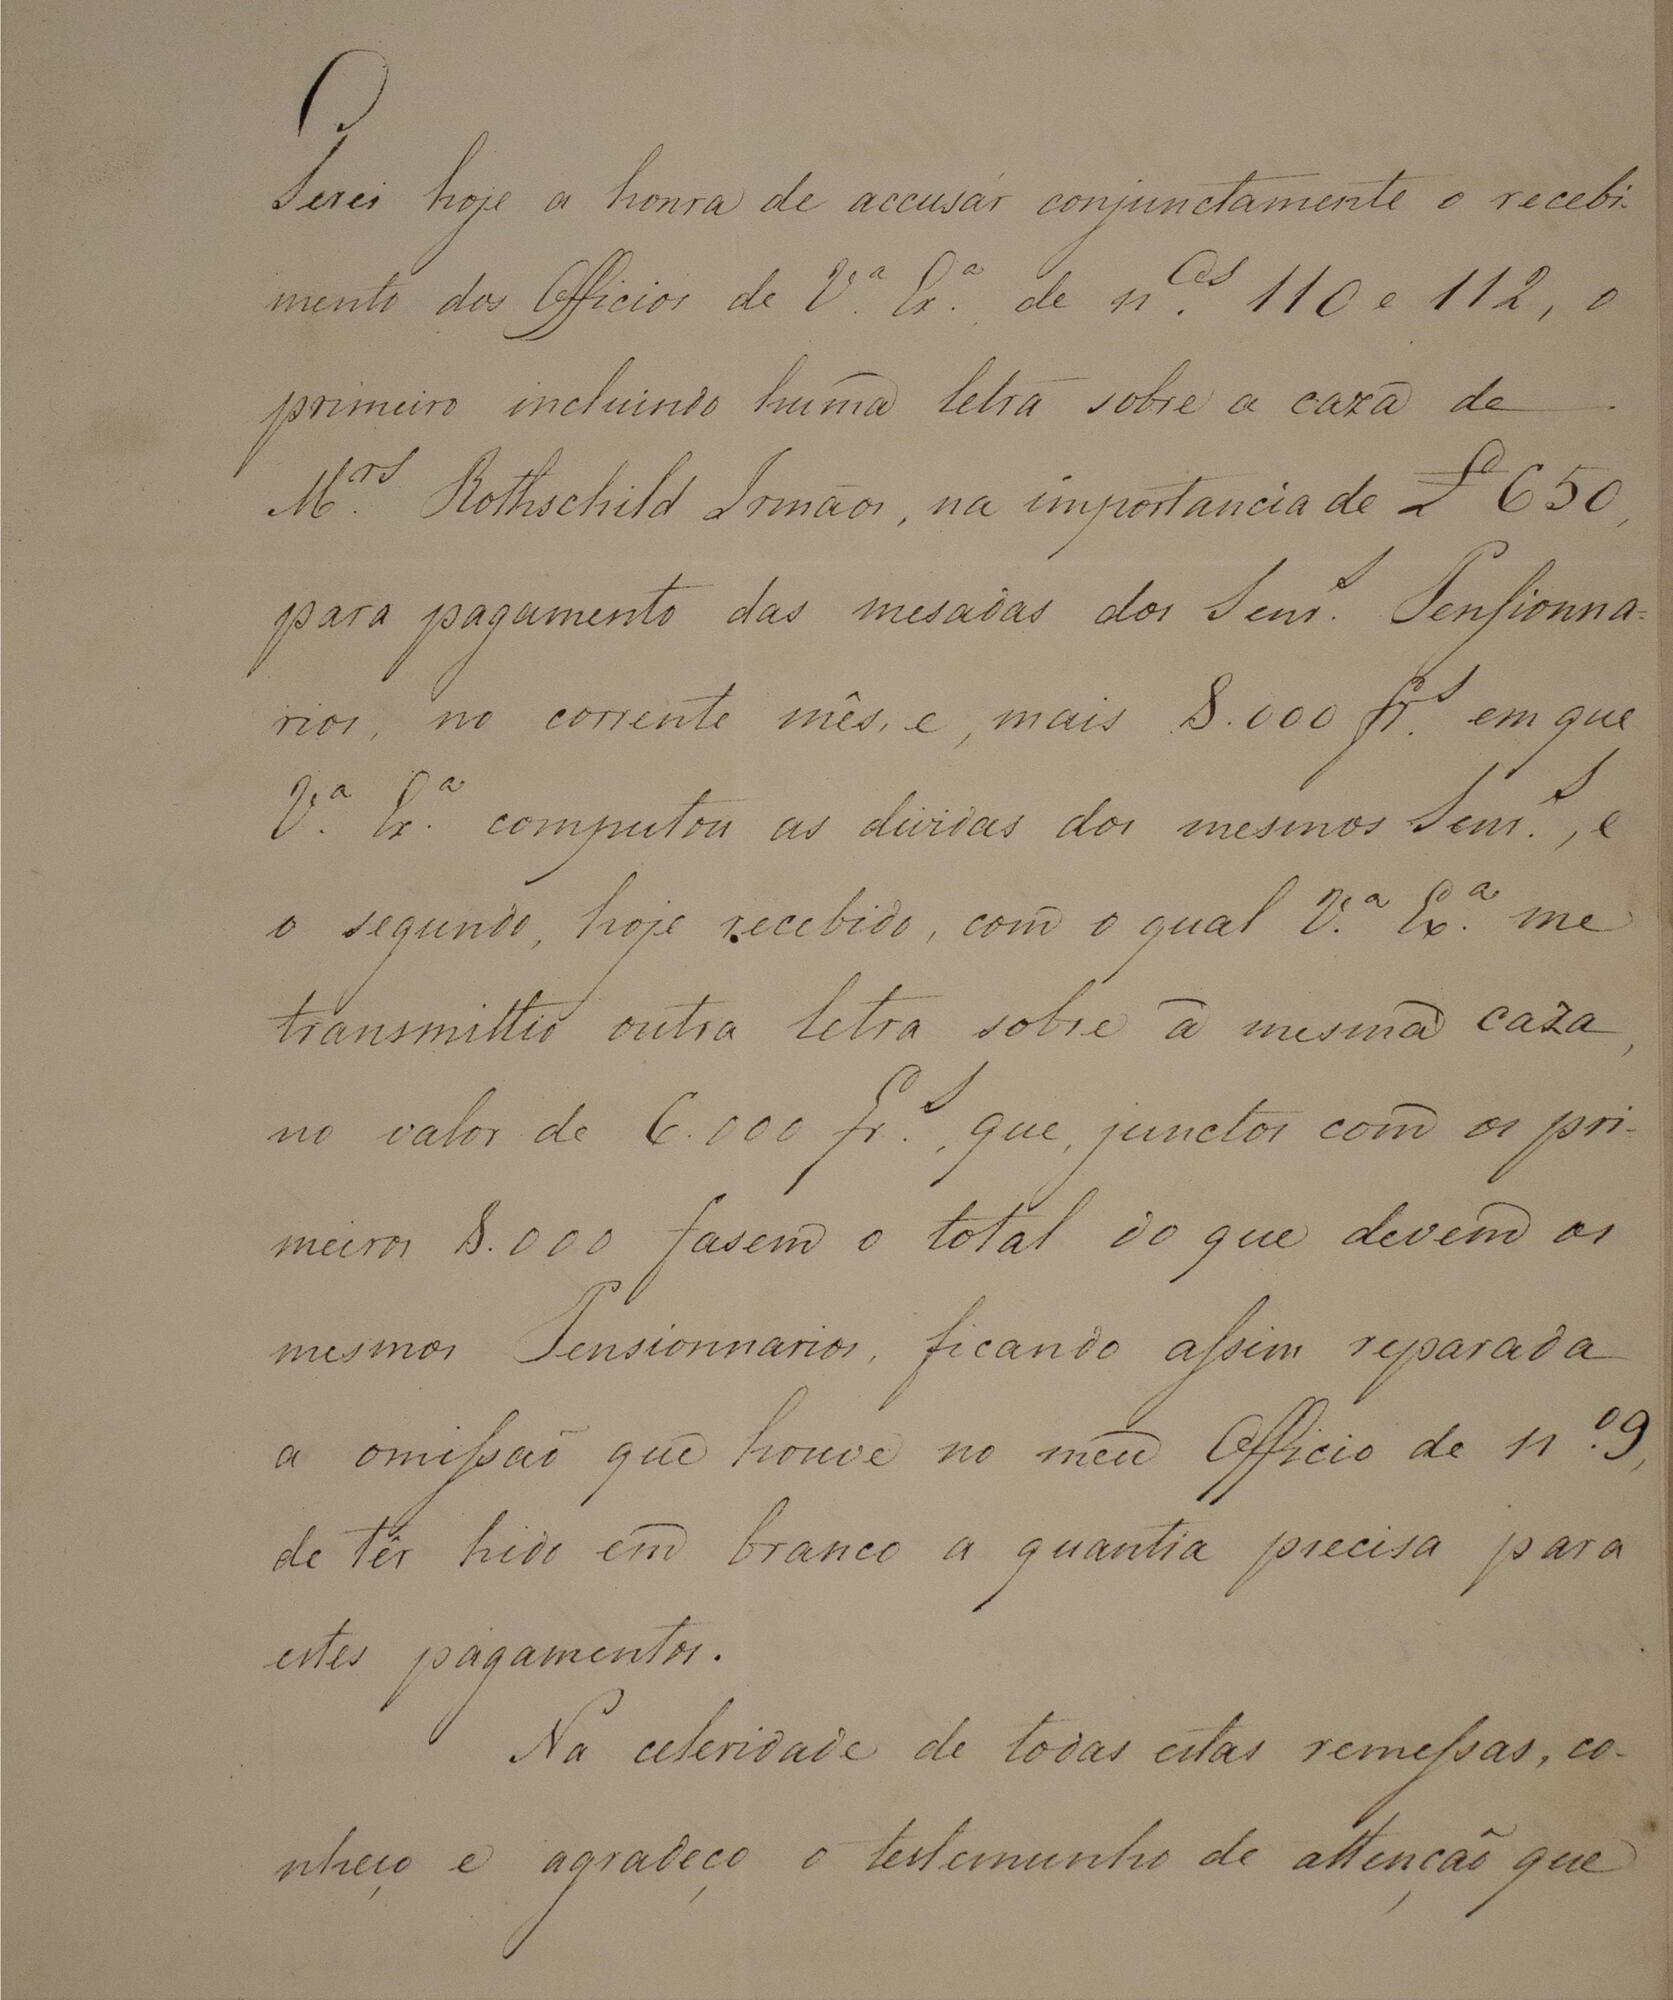 Terei hoje a honra de accusár conjunctamente o recebi-
mento dos Officios de V.ª Ex.ª de n.os 110 e 112, o
primeiro incluindo huma letra sobre a caza de
M.rs Rothschild Irmãos, na importancia de £ 650,
para pagamento das mesadas dos Senr.s Pensionna=
rios, no corrente mês, e, mais 8.000 fr.s em que
V.ª Ex.ª computou as dividas dos mesmos Senr.s, e
o segundo, hoje recebido, com o qual V.ª Ex.ª me
transmittio outra letra sobre a mesma caza,
no valor de 6.000 fr.s, que, junctos com os pri-
meiros 8.000 fasem o total do que devem os
mesmos Pensionnarios, ficando assim reparada
a omissão que houve no meu Officio de n.º 9,
de têr hido em branco a quantia precisa para
estes pagamentos.
Na celeridade de todas estas remessas, co-
nheço e agradeço o testemunho de attenção que